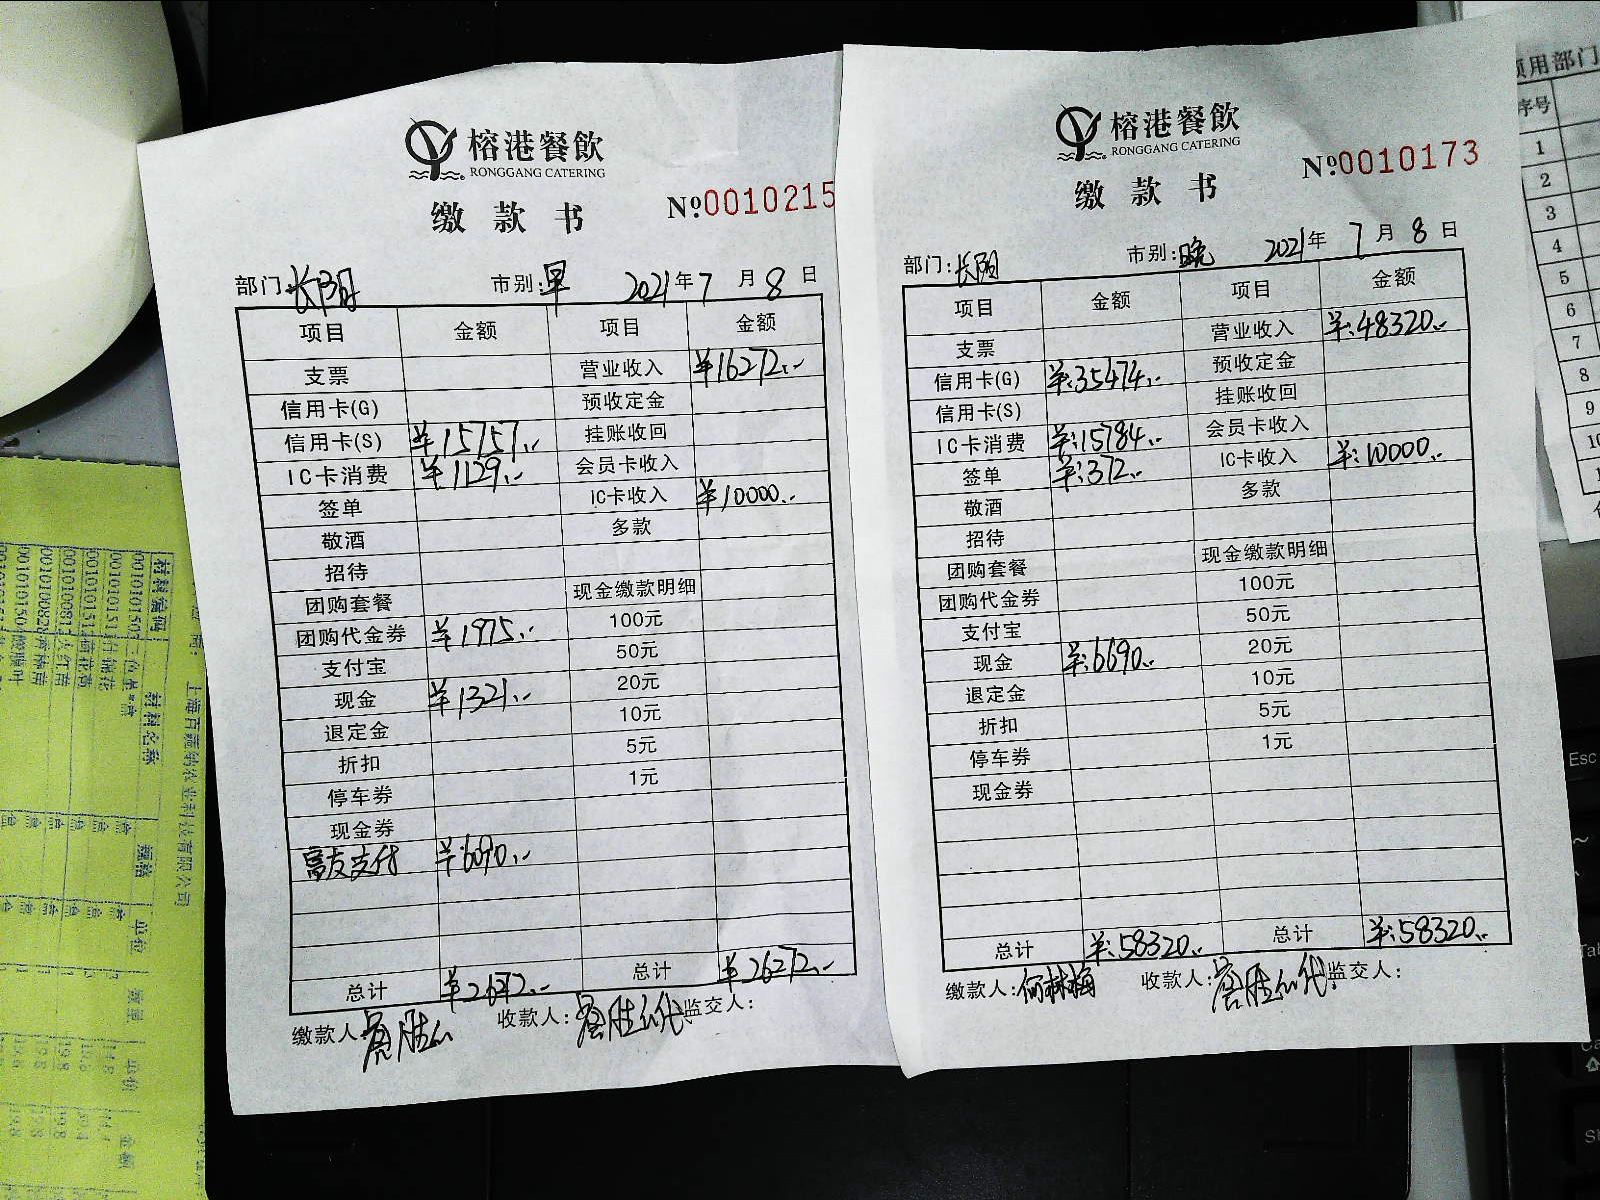 榕港餐飲
RONGGANG CATERING
缴款书
№0010215
部门:长阳 市别:早 2021年7月8日
项目 金额 项目 金额
支票 营业收入 ¥16272.-
信用卡(G) 预收定金
信用卡(S) ¥15757.- 挂账收回
IC卡消费 ¥1129.- 会员卡收入
签单 IC卡收入 ¥10000.-
敬酒 多款
招待
团购套餐 现金缴款明细
团购代金券 ¥1975.- 100元
支付宝 50元
现金 ¥1321.- 20元
退定金 10元
折扣 5元
停车券 1元
现金券
富友支付 ¥6090.-
总计 总计 ¥26272.-
缴款人: 收款人: 监交人:
榕港餐飲
RONGGANG CATERING
缴款书
№0010173
部门:长阳 市别:晚 2021年7月8日
项目 金额 项目 金额
支票 营业收入 ¥:48320.-
信用卡(G) ¥:35474.- 预收定金
信用卡(S) 挂账收回
IC卡消费 ¥:15784.- 会员卡收入
签单 ¥:372.- IC卡收入 ¥:10000.-
敬酒 多款
招待
团购套餐 现金缴款明细
团购代金券 100元
支付宝 50元
现金 ¥:6690.- 20元
退定金 10元
折扣 5元
停车券 1元
现金券
总计 ¥:58320.- 总计 ¥:58320.-
缴款人:何林梅 收款人: 监交人:
用部门
序号
1
2
3
4
5
6
7
8
9
上海百蔬纳农业科技有限公司
材料编码 材料名称 规格 单位 数量 单价 金额
Esc